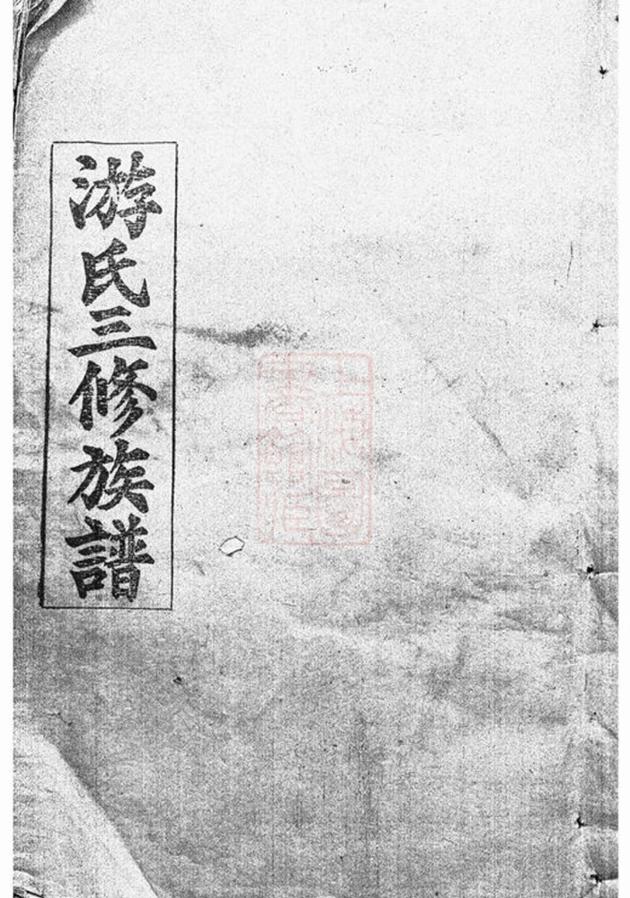 游氏三修族譜